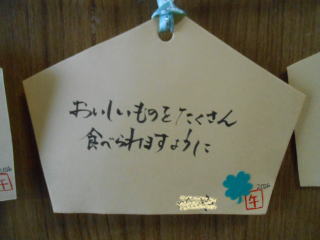 おいしいものをたくさん
食べられますように
午
午